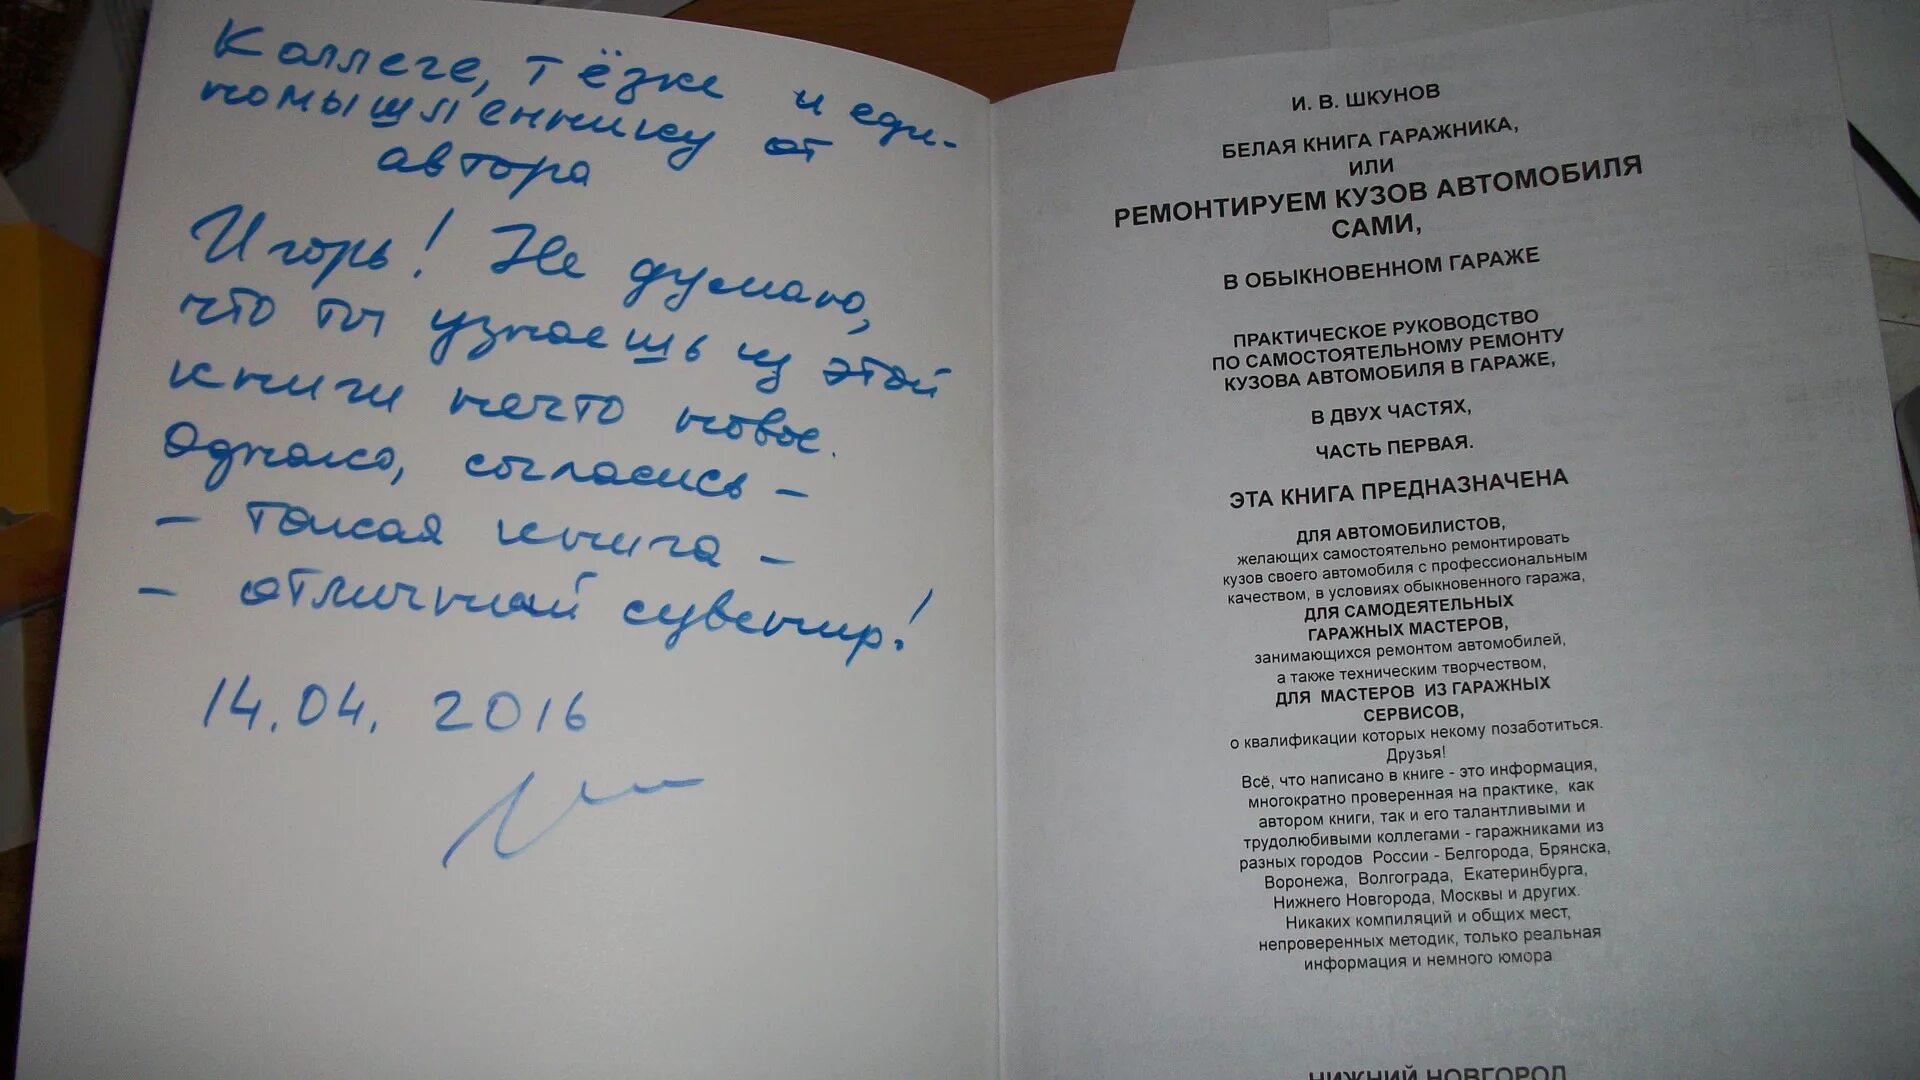 Коллеге, тёзке и еди-
номышленнику от
автора
Игорь! Не думаю,
что ты узнаешь из этой
книги нечто новое.
Однако, согласись -
- такая книга -
- отличный сувенир!
14.04.2016
И. В. ШКУНОВ
БЕЛАЯ КНИГА ГАРАЖНИКА,
ИЛИ
РЕМОНТИРУЕМ КУЗОВ АВТОМОБИЛЯ
САМИ,
В ОБЫКНОВЕННОМ ГАРАЖЕ
ПРАКТИЧЕСКОЕ РУКОВОДСТВО
ПО САМОСТОЯТЕЛЬНОМУ РЕМОНТУ
КУЗОВА АВТОМОБИЛЯ В ГАРАЖЕ,
В ДВУХ ЧАСТЯХ,
ЧАСТЬ ПЕРВАЯ.
ЭТА КНИГА ПРЕДНАЗНАЧЕНА
ДЛЯ АВТОМОБИЛИСТОВ,
желающих самостоятельно ремонтировать
кузов своего автомобиля с профессиональным
качеством, в условиях обыкновенного гаража,
ДЛЯ САМОДЕЯТЕЛЬНЫХ
ГАРАЖНЫХ МАСТЕРОВ,
занимающихся ремонтом автомобилей,
а также техническим творчеством,
ДЛЯ МАСТЕРОВ ИЗ ГАРАЖНЫХ
СЕРВИСОВ,
о квалификации которых некому позаботиться.
Друзья!
Всё, что написано в книге - это информация,
многократно проверенная на практике, как
автором книги, так и его талантливыми и
трудолюбивыми коллегами - гаражниками из
разных городов России - Белгорода, Брянска,
Воронежа, Волгограда, Екатеринбурга,
Нижнего Новгорода, Москвы и других.
Никаких компиляций и общих мест,
непроверенных методик, только реальная
информация и немного юмора
НИЖНИЙ НОВГОРОД